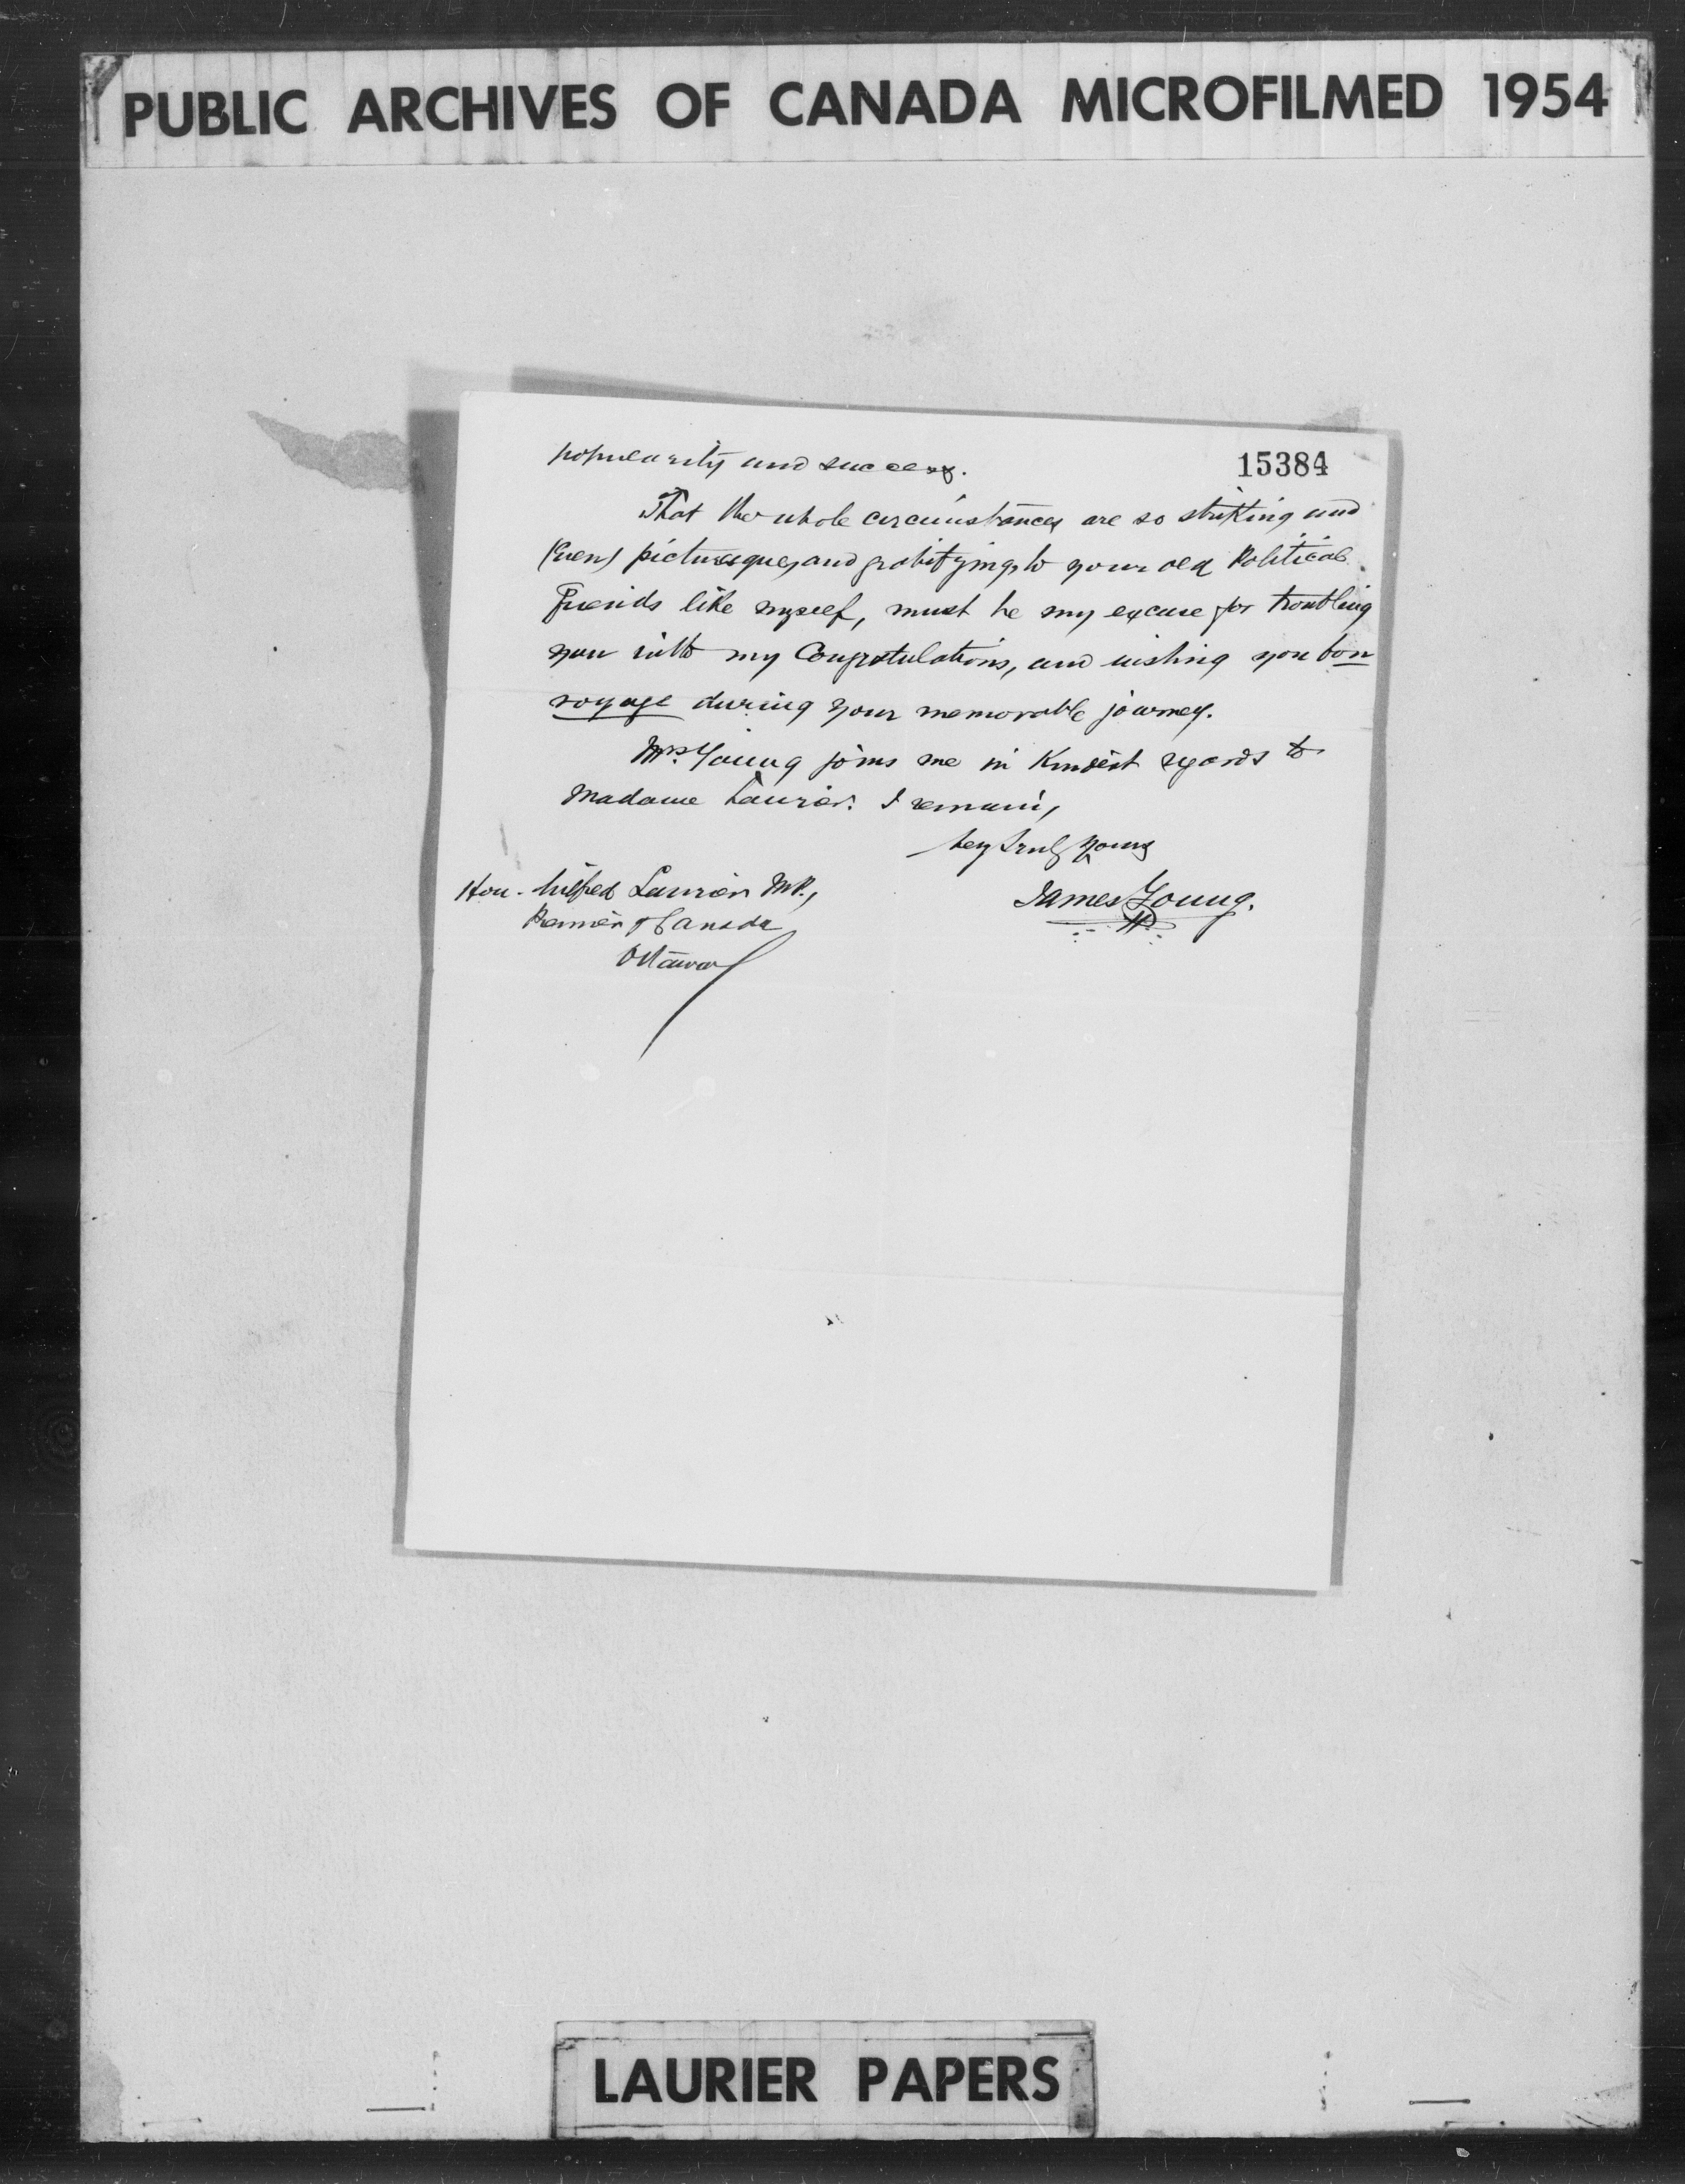 PUBLIC ARCHIVES OF CANADA MICROFILMED 1954
15384
popularity and success.
That the whole circumstances are so striking and
(even) picturesque, and gratifying to your old Political
Friends like myself, must be my excuse for troubling
you with my Congratulations, and wishing you bon
voyage during your memorable journey.
Mrs. Young joins me in Kindest regards to
Madame Laurier. I remain,
Very truly yours
James Young.
Hon. Wilfred Laurier M.P.,
Premier of Canada
Ottawa
LAURIER PAPERS